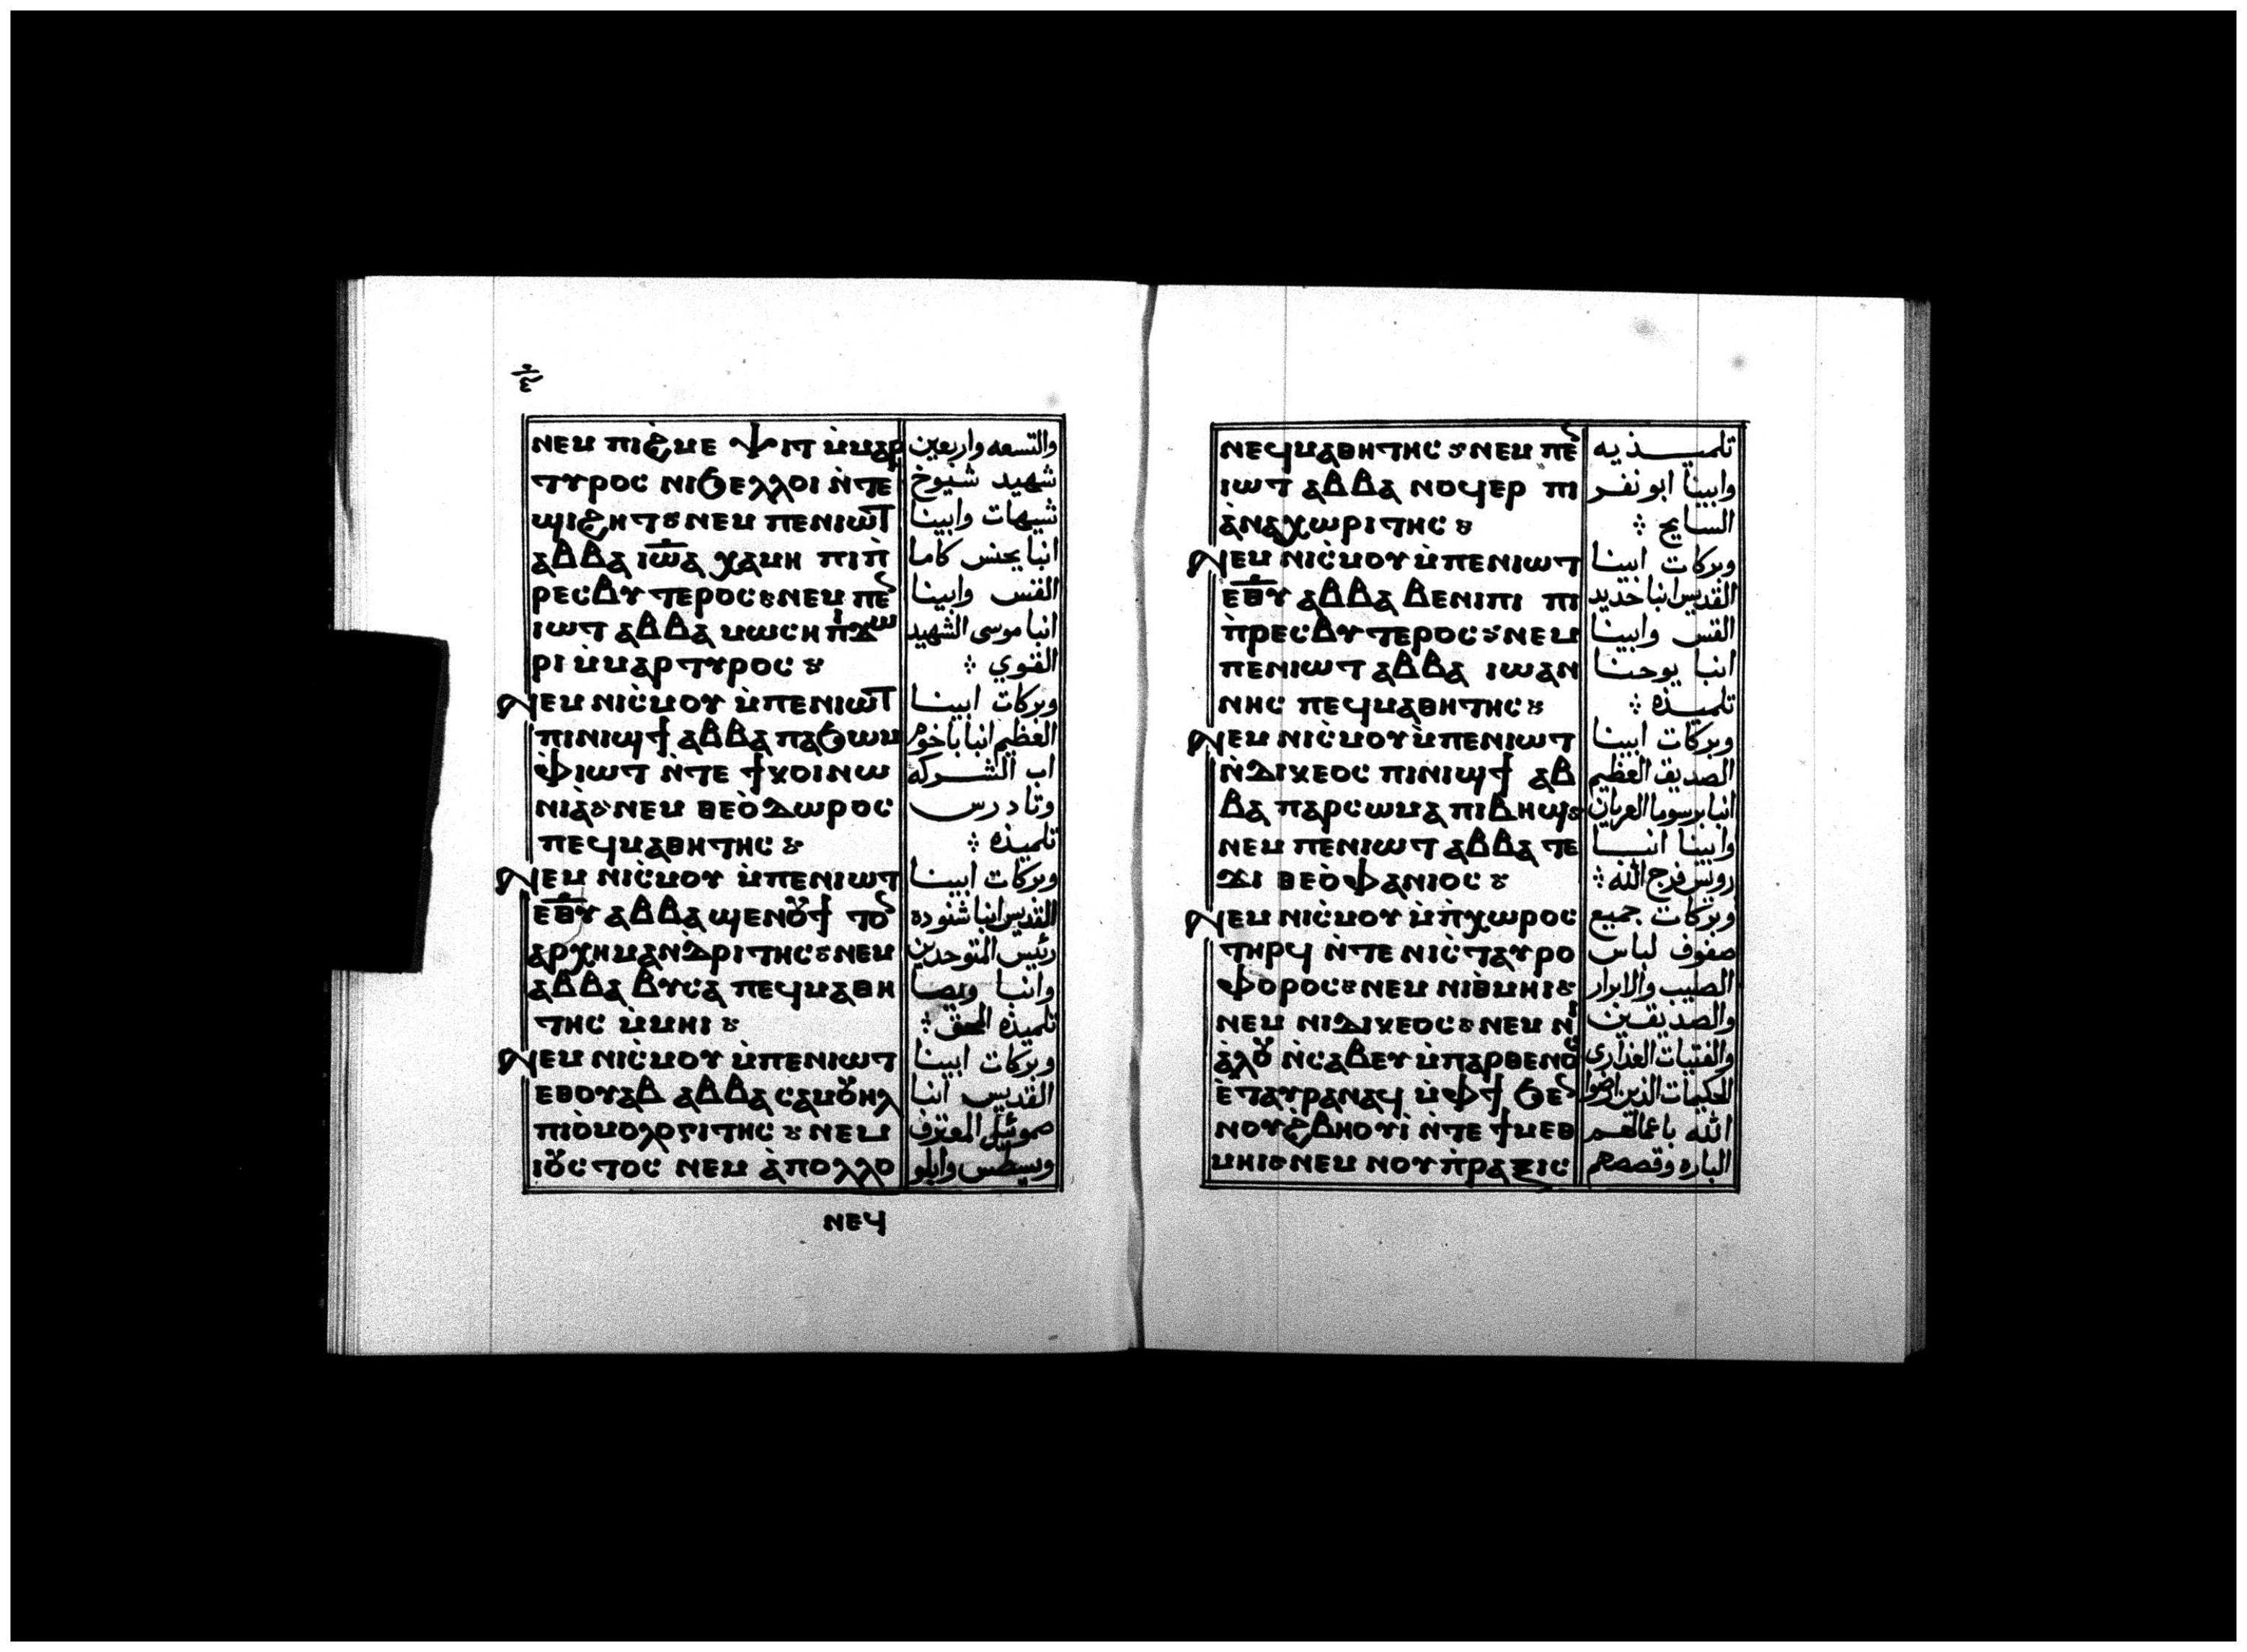 ⲛⲉⲙ ⲡⲓϩ̀ⲙⲉ ⲯⲓⲧ ⲙ̀ⲙⲁⲣ والتسعه واربعين
ⲧⲩⲣⲟⲥ ⲛⲓϭⲉⲗⲗⲟⲓ ⲛ̀ⲧⲉ شهيد شيوخ
ϣⲓϩⲏⲧ ⲛⲉⲙ ⲡⲉⲛⲓⲱⲧ شيهات وابينا
ⲁⲃⲃⲁ ⲓⲱ̅ⲁ ⲭⲁⲙⲏ ⲡⲓⲡ̀ انبا يحنس كاما
ⲣⲉⲥⲃⲩⲧⲉⲣⲟⲥ ⲛⲉⲙ ⲡⲉ القس وابينا
ⲓⲱⲧ ⲁⲃⲃⲁ ⲙⲱⲥⲏ ⲡ̀ϫⲱ انبا موسى الشهيد
ⲣⲓ ⲙ̀ⲙⲁⲣⲧⲩⲣⲟⲥ القوي
ⲛⲉⲙ ⲛⲓⲥ̀ⲙⲟⲩ ⲙ̀ⲡⲉⲛⲓⲱⲧ وبركات ابينا
ⲡⲓⲛⲓϣϯ ⲁⲃⲃⲁ ⲡⲁϭⲱⲙ العظيم انبا باخوم
ⲫⲓⲱⲧ ⲛ̀ⲧⲉ ϯⲕⲟⲓⲛⲱ اب الشركة
ⲛⲓⲁ̀ ⲛⲉⲙ ⲑⲉⲟ̀ⲇⲱⲣⲟⲥ وتادرس
ⲡⲉϥⲙⲁⲑⲏⲧⲏⲥ تلميذه
ⲛⲉⲙ ⲛⲓⲥ̀ⲙⲟⲩ ⲙ̀ⲡⲉⲛⲓⲱⲧ وبركات ابينا
ⲉ̅ⲑ̅ⲩ̅ ⲁⲃⲃⲁ ϣⲉⲛⲟⲩϯ ⲡⲓ القديس انبا شنوده
ⲁⲣⲭⲏⲙⲁⲛⲇ̀ⲣⲓⲧⲏⲥ ⲛⲉⲙ رئيس المتوحدين
ⲁⲃⲃⲁ ⲃⲩⲥⲁ ⲡⲉϥⲙⲁⲑⲏ وانبا ويصا
ⲧⲏⲥ ⲙ̀ⲙⲏⲓ تلميذه المحق
ⲛⲉⲙ ⲛⲓⲥ̀ⲙⲟⲩ ⲙ̀ⲡⲉⲛⲓⲱⲧ وبركات ابينا
ⲉⲑⲟⲩⲁⲃ ⲁⲃⲃⲁ ⲥⲁⲙⲟⲩⲏⲗ القديس انبا
ⲡⲓⲟ̀ⲙⲟⲗⲟⲅⲓⲧⲏⲥ ⲛⲉⲙ صموئيل المعترف
ⲓⲟⲩⲥⲧⲟⲥ ⲛⲉⲙ ⲁ̀ⲡⲟⲗⲗⲟ ويسطس وابلو
ⲛⲉϥ
ⲛⲉϥⲙⲁⲑⲏⲧⲏⲥ ⲛⲉⲙ ⲡⲉ تلميذيه
ⲓⲱⲧ ⲁⲃⲃⲁ ⲛⲟϥⲉⲣ ⲡⲓ وابينا ابو نفر
ⲁ̀ⲛⲁⲭⲱⲣⲓⲧⲏⲥ السايح
ⲛⲉⲙ ⲛⲓⲥ̀ⲙⲟⲩ ⲙ̀ⲡⲉⲛⲓⲱⲧ وبركات ابينا
ⲉ̅ⲑ̅ⲩ̅ ⲁⲃⲃⲁ ⲃⲉⲛⲓⲡⲓ ⲡⲓ القديس انبا حديد
ⲡ̀ⲣⲉⲥⲃⲩⲧⲉⲣⲟⲥ ⲛⲉⲙ القس وابينا
ⲡⲉⲛⲓⲱⲧ ⲁⲃⲃⲁ ⲓⲱⲁⲛ انبا يوحنا
ⲛⲏⲥ ⲡⲉϥⲙⲁⲑⲏⲧⲏⲥ تلميذه
ⲛⲉⲙ ⲛⲓⲥ̀ⲙⲟⲩ ⲙ̀ⲡⲉⲛⲓⲱⲧ وبركات ابينا
ⲛ̀ⲇⲓⲕⲉⲟⲥ ⲡⲓⲛⲓϣϯ ⲁⲃ الصديق العظيم
ⲃⲁ ⲡⲁⲣⲥⲱⲙⲁ ⲡⲓⲃⲏϣ انبا برسوما العريان
ⲛⲉⲙ ⲡⲉⲛⲓⲱⲧ ⲁⲃⲃⲁ ⲧⲉ وابينا انبا
ϫⲓ ⲑⲉⲟ̀ⲫⲁⲛⲓⲟⲥ رويس فرج الله
ⲛⲉⲙ ⲛⲓⲥ̀ⲙⲟⲩ ⲙ̀ⲡ̀ⲭⲱⲣⲟⲥ وبركات جميع
ⲧⲏⲣϥ ⲛ̀ⲧⲉ ⲛⲓⲥ̀ⲧⲁⲩⲣⲟ صفوف لباس
ⲫⲟⲣⲟⲥ ⲛⲉⲙ ⲛⲓⲑ̀ⲙⲏⲓ الصليب والابرار
ⲛⲉⲙ ⲛⲓⲇⲓⲕⲉⲟⲥ ⲛⲉⲙ ⲛⲓ والصديقين
ⲁ̀ⲗⲟⲩ ⲛ̀ⲥⲁⲃⲉⲩ ⲙ̀ⲡⲁⲣⲑⲉⲛⲟⲥ والفتيات العذارى
ⲉ̀ⲧⲁⲩⲣⲁⲛⲁϥ ⲙ̀ⲫϯ ϧⲉⲛ الحكيمات الذين ارضوا
ⲛⲟⲩϩ̀ⲃⲏⲟⲩⲓ̀ ⲛ̀ⲧⲉ ϯⲙⲉⲑ الله باعمالهم
ⲙⲏⲓ ⲛⲉⲙ ⲛⲟⲩⲡ̀ⲣⲁⲝⲓⲥ الباره وقصصهم